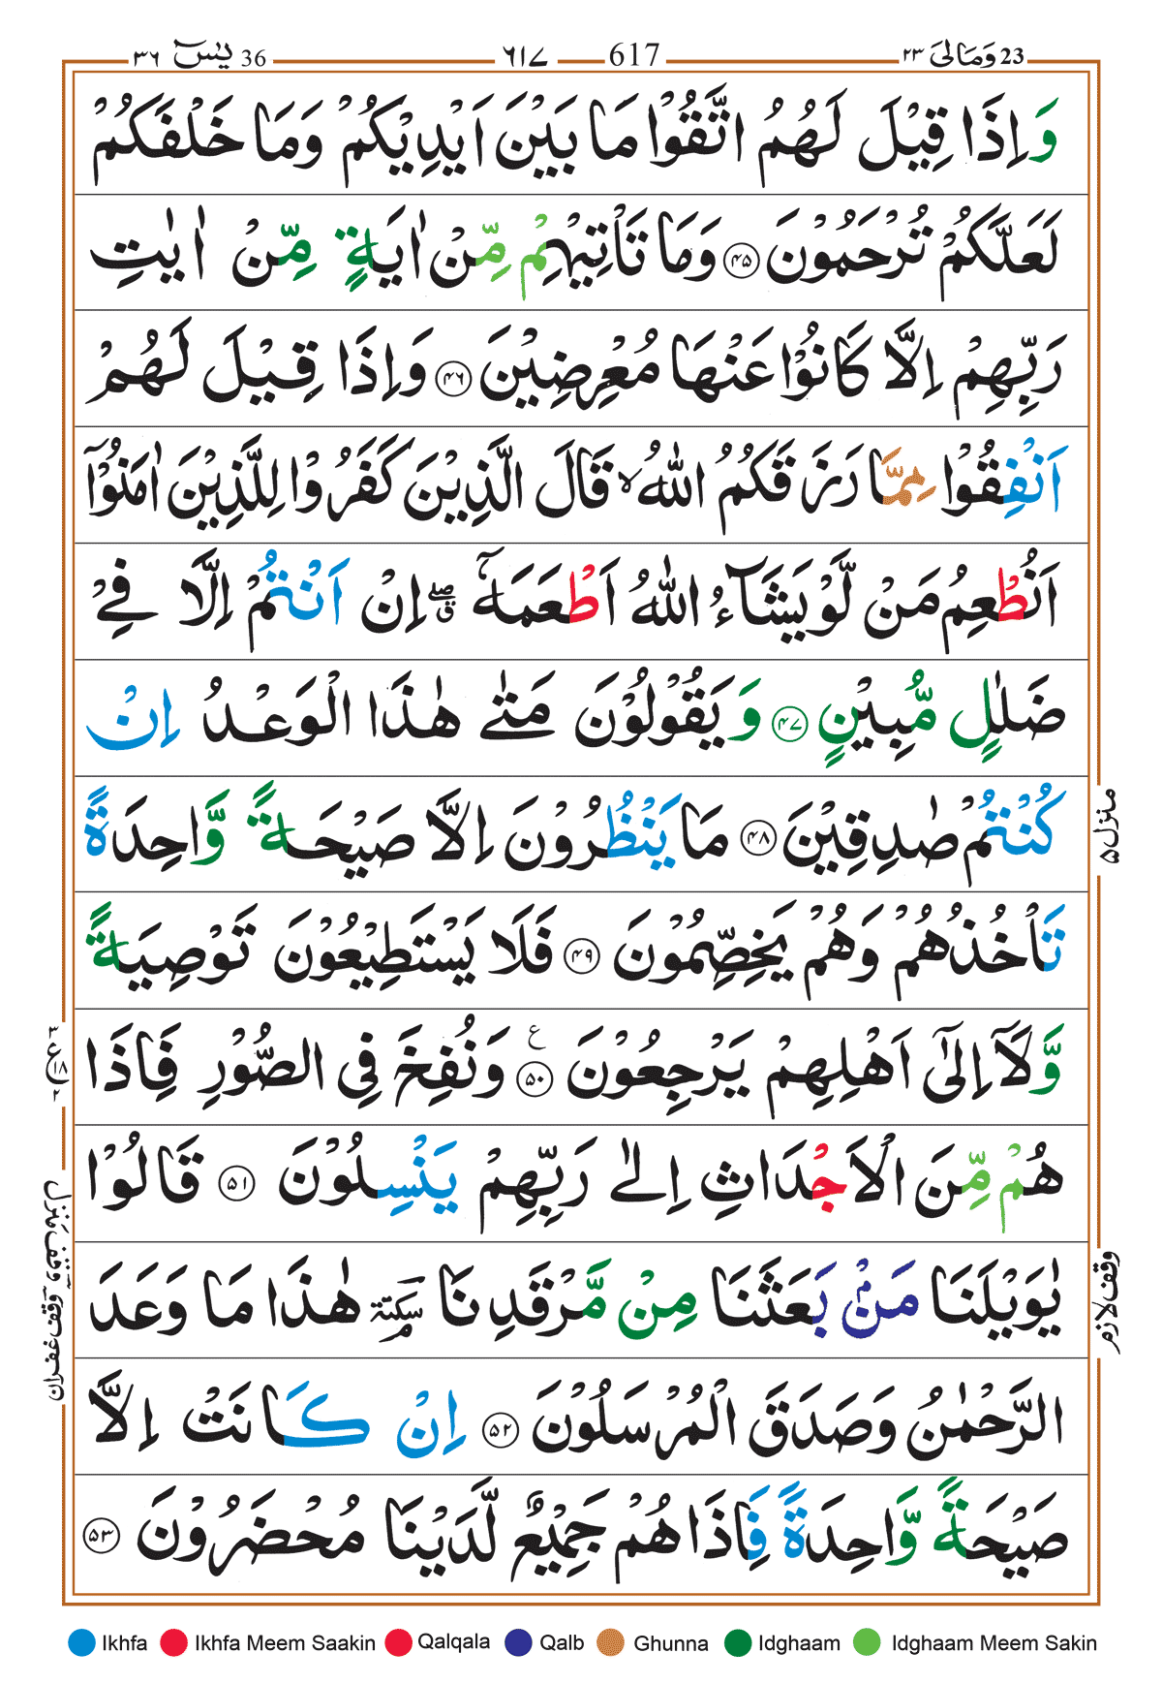 36 یٰسٓ ۳۶ 617 ۶۱۷ 23 وَمَالِیَ ۲۳
وَاِذَا قِيْلَ لَهُمُ اتَّقُوْا مَا بَيْنَ اَيْدِيْكُمْ وَمَا خَلْفَكُمْ
لَعَلَّكُمْ تُرْحَمُوْنَ ۴۵ وَمَا تَاْتِيْهِمْ مِّنْ اٰيَةٍ مِّنْ اٰيٰتِ
رَبِّهِمْ اِلَّا كَانُوْا عَنْهَا مُعْرِضِيْنَ ۴۶ وَاِذَا قِيْلَ لَهُمْ
اَنْفِقُوْا مِمَّا رَزَقَكُمُ اللّٰهُ ۙ قَالَ الَّذِيْنَ كَفَرُوْا لِلَّذِيْنَ اٰمَنُوْۤا
اَنُطْعِمُ مَنْ لَّوْ يَشَآءُ اللّٰهُ اَطْعَمَهٗۤ ۖۗ اِنْ اَنْتُمْ اِلَّا فِيْ
ضَلٰلٍ مُّبِيْنٍ ۴۷ وَيَقُوْلُوْنَ مَتٰى هٰذَا الْوَعْدُ اِنْ
كُنْتُمْ صٰدِقِيْنَ ۴۸ مَا يَنْظُرُوْنَ اِلَّا صَيْحَةً وَّاحِدَةً
تَاْخُذُهُمْ وَهُمْ يَخِصِّمُوْنَ ۴۹ فَلَا يَسْتَطِيْعُوْنَ تَوْصِيَةً
وَّلَاۤ اِلٰۤى اَهْلِهِمْ يَرْجِعُوْنَ ۵۰ ع وَنُفِخَ فِى الصُّوْرِ فَاِذَا
هُمْ مِّنَ الْاَجْدَاثِ اِلٰى رَبِّهِمْ يَنْسِلُوْنَ ۵۱ قَالُوْا
يٰوَيْلَنَا مَنْۢ بَعَثَنَا مِنْ مَّرْقَدِنَا سكتة هٰذَا مَا وَعَدَ
الرَّحْمٰنُ وَصَدَقَ الْمُرْسَلُوْنَ ۵۲ اِنْ كَانَتْ اِلَّا
صَيْحَةً وَّاحِدَةً فَاِذَا هُمْ جَمِيْعٌ لَّدَيْنَا مُحْضَرُوْنَ ۵۳
منزل ۵
وقف لازم
وقف غفران
Ikhfa Ikhfa Meem Saakin Qalqala Qalb Ghunna Idghaam Idghaam Meem Sakin